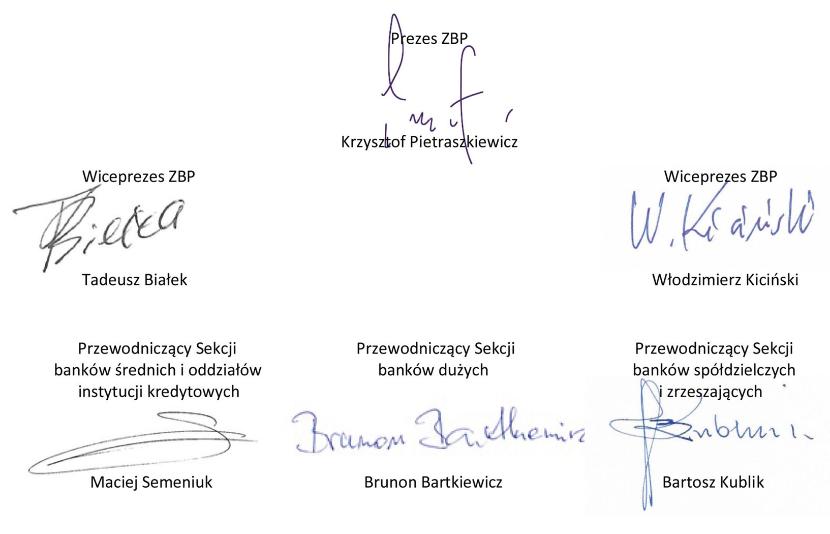 Prezes ZBP
Krzysztof Pietraszkiewicz
Wiceprezes ZBP
Tadeusz Białek
Wiceprezes ZBP
W. Kiciński
Włodzimierz Kiciński
Przewodniczący Sekcji
banków średnich i oddziałów
instytucji kredytowych
Maciej Semeniuk
Przewodniczący Sekcji
banków dużych
Brunon Bartkiewicz
Brunon Bartkiewicz
Przewodniczący Sekcji
banków spółdzielczych
i zrzeszających
Bartosz Kublik